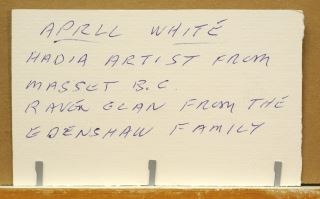 APRLL WHITE
HADIA ARTIST FROM
MASSET B.C.
RAVEN CLAN FROM THE
EDENSHAW FAMILY